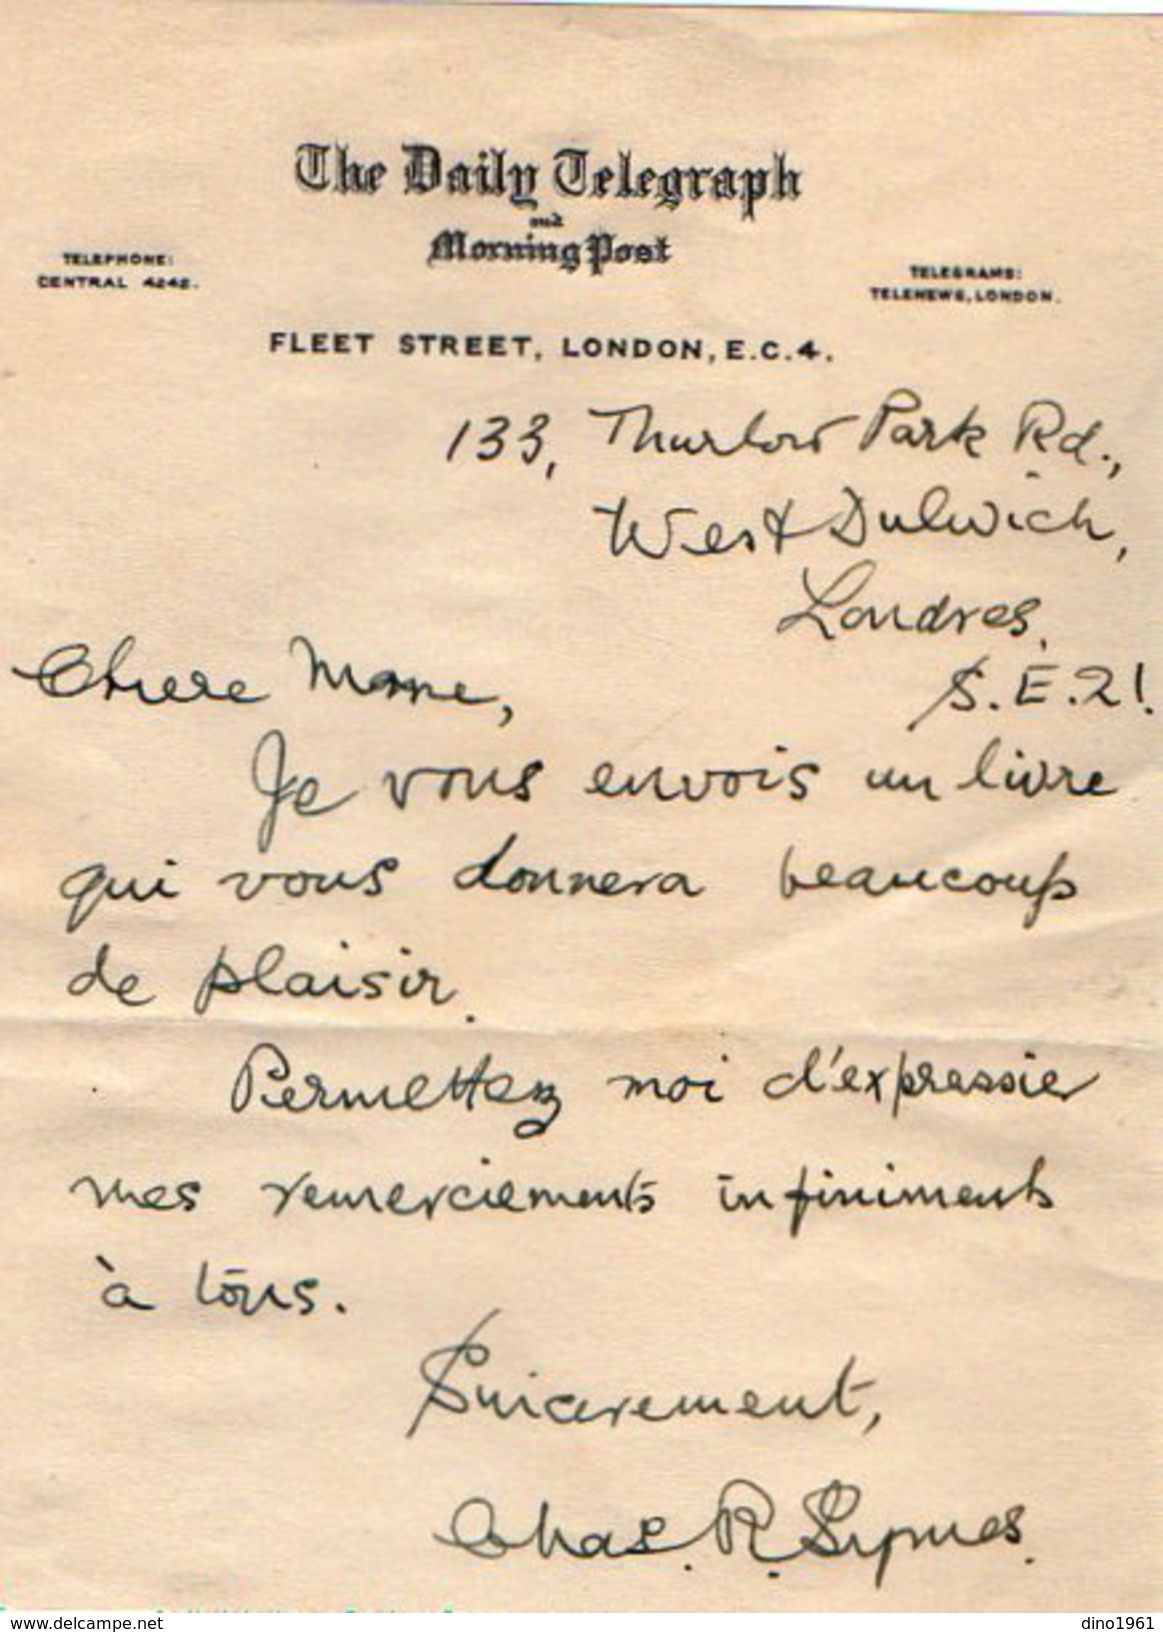 The Daily Telegraph
and
Morning Post
TELEPHONE:
CENTRAL 4242.
TELEGRAMS:
TELENEWS, LONDON.
FLEET STREET, LONDON, E.C.4.
133, Thurlow Park Rd.,
West Dulwich,
Londres,
S.E.21.
Chere
Je vous envois un livre
qui vous donnera beaucoup
de plaisir.
Permettez moi d'expressier
mes remerciements infiniments
à tous.
Sincerement,
Chas. R. Symes.
www.delcampe.net
dino1961